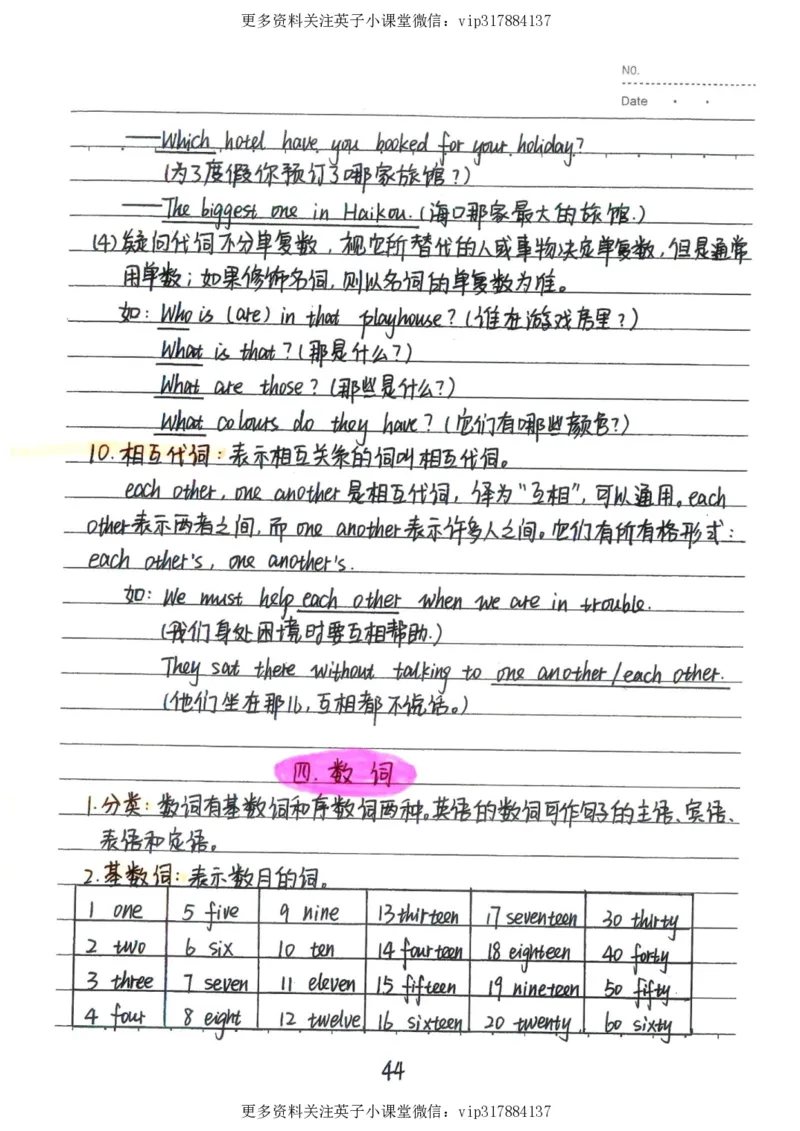 更多资料关注英子小课堂微信：vip317884137
NO.
Date
——Which hotel have you booked for your holiday?
(为了度假你预订了哪家旅馆？)
——The biggest one in Haikou. (海口那家最大的旅馆.)
(4)疑问代词不分单复数，视它所替代的人或事物决定单复数，但是通常
用单数；如果修饰名词，则以名词的单复数为准。
如：Who is (are) in that playhouse? (谁在游戏房里？)
What is that? (那是什么？)
What are those? (那些是什么？)
What colours do they have? (它们有哪些颜色？)
10.相互代词：表示相互关系的词叫相互代词。
each other, one another是相互代词，译为“互相”，可以通用。each
other表示两者之间，而one another表示许多人之间。它们有所有格形式：
each other's, one another's.
如：We must help each other when we are in trouble.
(我们身处困境时要互相帮助.)
They sat there without talking to one another/each other.
(他们坐在那儿，互相都不说话。)
四.数词
1.分类：数词有基数词和序数词两种。英语的数词可作句子的主语、宾语、
表语和定语。
2.基数词：表示数目的词。
1 one 5 five 9 nine 13 thirteen 17 seventeen 30 thirty
2 two 6 six 10 ten 14 fourteen 18 eighteen 40 forty
3 three 7 seven 11 eleven 15 fifteen 19 nineteen 50 fifty
4 four 8 eight 12 twelve 16 sixteen 20 twenty 60 sixty
44
更多资料关注英子小课堂微信：vip317884137